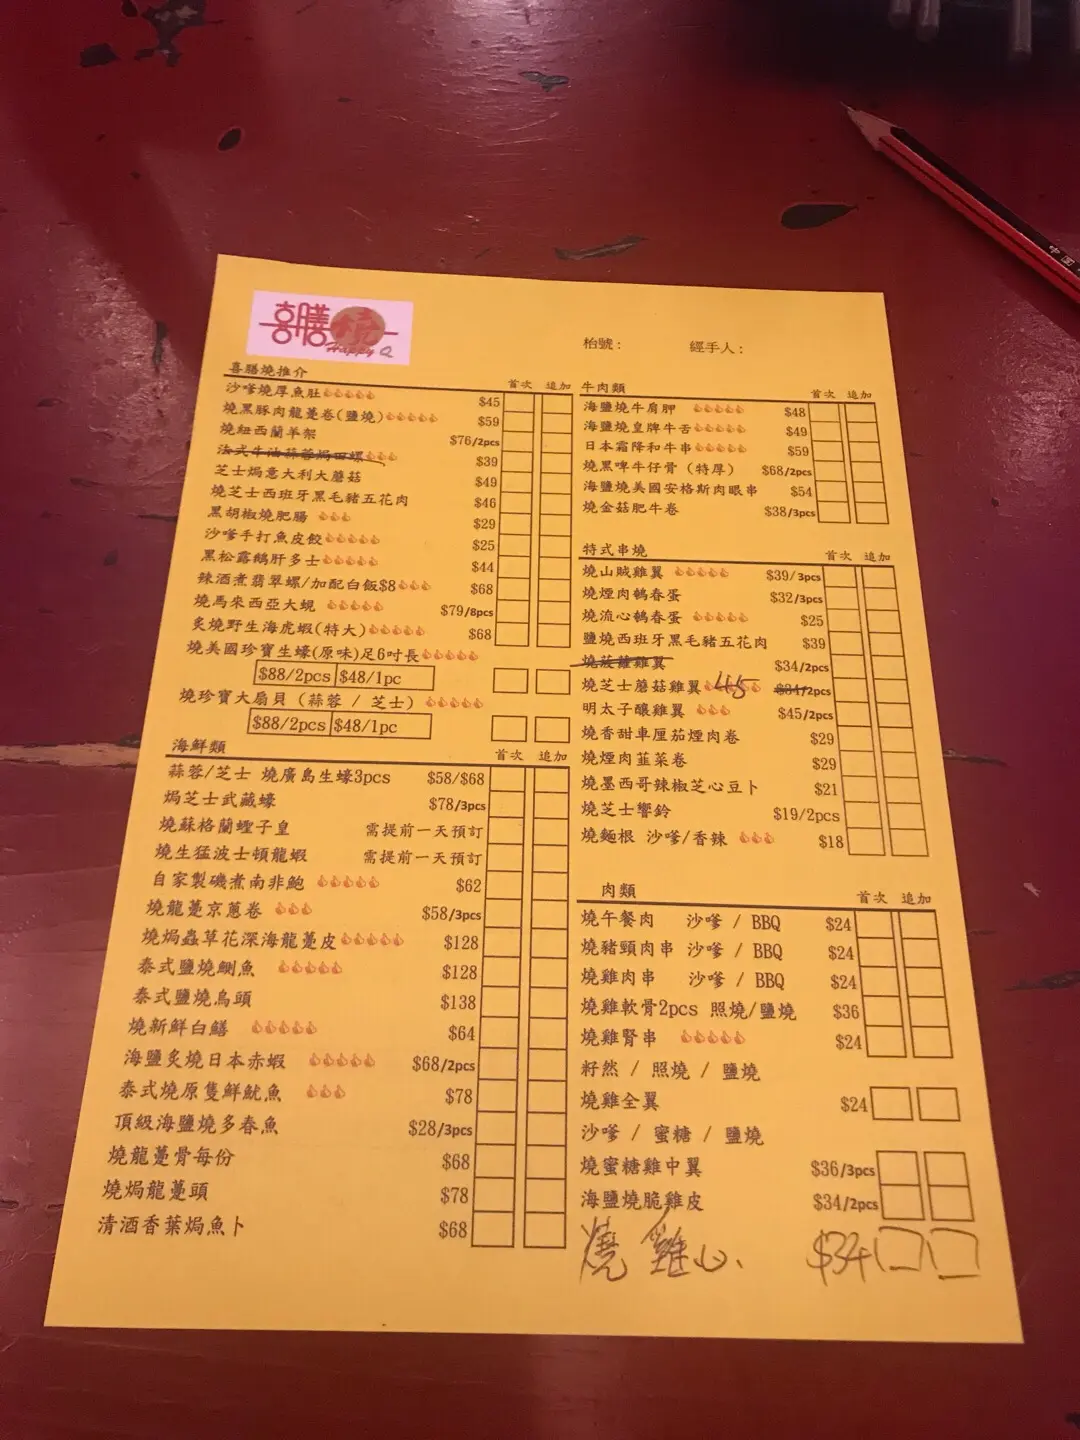 喜膳燒
Happy Q
枱號：
經手人：
喜膳燒推介
首次 追加
沙嗲燒厚魚肚 $45
燒黑豚肉龍躉卷(鹽燒) $59
燒紐西蘭羊架 $76/2pcs
法式牛油蒜蓉焗田螺 $39
芝士焗意大利大蘑菇 $49
燒芝士西班牙黑毛豬五花肉 $46
黑胡椒燒肥腸 $29
沙嗲手打魚皮餃 $25
黑松露鵝肝多士 $44
辣酒煮翡翠螺/加配白飯$8 $68
燒馬來西亞大蜆 $79/8pcs
炙燒野生海虎蝦(特大) $68
燒美國珍寶生蠔(原味)足6吋長
$88/2pcs $48/1pc
燒珍寶大扇貝 (蒜蓉 / 芝士)
$88/2pcs $48/1pc
海鮮類
首次 追加
蒜蓉/芝士 燒廣島生蠔3pcs $58/$68
焗芝士武藏蠔 $78/3pcs
燒蘇格蘭蟶子皇 需提前一天預訂
燒生猛波士頓龍蝦 需提前一天預訂
自家製磯煮南非鮑 $62
燒龍躉京蔥卷 $58/3pcs
燒焗蟲草花深海龍躉皮 $128
泰式鹽燒鰂魚 $128
泰式鹽燒烏頭 $138
燒新鮮白鱔 $64
海鹽炙燒日本赤蝦 $68/2pcs
泰式燒原隻鮮魷魚 $78
頂級海鹽燒多春魚 $28/3pcs
燒龍躉骨每份 $68
燒焗龍躉頭 $78
清酒香葉焗魚卜 $68
牛肉類
首次 追加
海鹽燒牛肩胛 $48
海鹽燒皇牌牛舌 $49
日本霜降和牛串 $59
燒黑啤牛仔骨 (特厚) $68/2pcs
海鹽燒美國安格斯肉眼串 $54
燒金菇肥牛卷 $38/3pcs
特式串燒
首次 追加
燒山賊雞翼 $39/3pcs
燒煙肉鵪春蛋 $32/3pcs
燒流心鵪春蛋 $25
鹽燒西班牙黑毛豬五花肉 $39
燒菠蘿雞翼 $34/2pcs
燒芝士蘑菇雞翼 45 $34/2pcs
明太子釀雞翼 $45/2pcs
燒香甜車厘茄煙肉卷 $29
燒煙肉韮菜卷 $29
燒墨西哥辣椒芝心豆卜 $21
燒芝士響鈴 $19/2pcs
燒麵根 沙嗲/香辣 $18
肉類
首次 追加
燒午餐肉 沙嗲 / BBQ $24
燒豬頸肉串 沙嗲 / BBQ $24
燒雞肉串 沙嗲 / BBQ $24
燒雞軟骨2pcs 照燒/鹽燒 $36
燒雞腎串 $24
籽然 / 照燒 / 鹽燒
燒雞全翼 $24
沙嗲 / 蜜糖 / 鹽燒
燒蜜糖雞中翼 $36/3pcs
海鹽燒脆雞皮 $34/2pcs
燒雞心. $34
中國